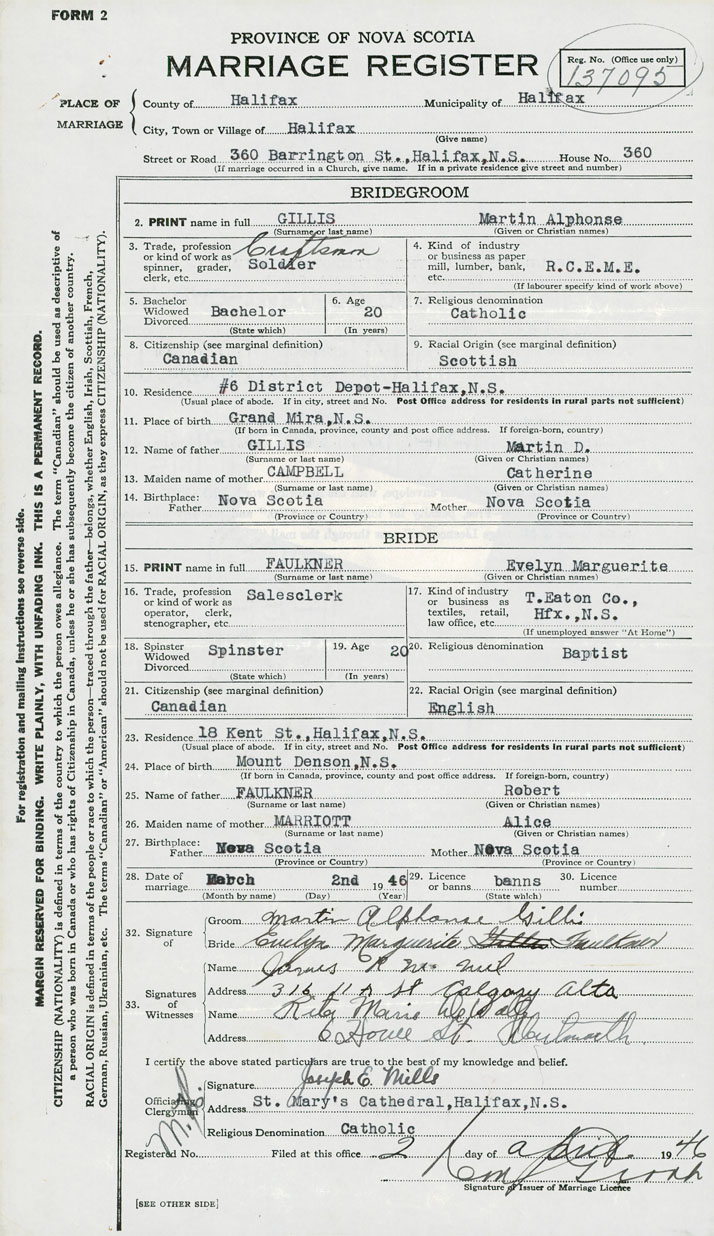 FORM 2
PROVINCE OF NOVA SCOTIA
MARRIAGE REGISTER
Reg. No. (Office use only)
137095
PLACE OF MARRIAGE
County of Halifax Municipality of Halifax
City, Town or Village of Halifax
(Give name)
Street or Road 360 Barrington St.,Halifax,N.S. House No. 360
(If marriage occurred in a Church, give name. If in a private residence give street and number)
BRIDEGROOM
2. PRINT name in full GILLIS Martin Alphonse
(Surname or last name) (Given or Christian names)
3. Trade, profession or kind of work as spinner, grader, clerk, etc. Craftsman Soldier
4. Kind of industry or business as paper mill, lumber, bank, etc. R.C.E.M.E.
(If labourer specify kind of work above)
5. Bachelor Widowed Divorced Bachelor
(State which)
6. Age 20
(In years)
7. Religious denomination
Catholic
8. Citizenship (see marginal definition)
Canadian
9. Racial Origin (see marginal definition)
Scottish
10. Residence #6 District Depot-Halifax,N.S.
(Usual place of abode. If in city, street and No. Post Office address for residents in rural parts not sufficient)
11. Place of birth Grand Mira,N.S.
(If born in Canada, province, county and post office address. If foreign-born, country)
12. Name of father GILLIS Martin D.
(Surname or last name) (Given or Christian names)
13. Maiden name of mother CAMPBELL Catherine
(Surname or last name) (Given or Christian names)
14. Birthplace: Father Nova Scotia Mother Nova Scotia
(Province or Country) (Province or Country)
BRIDE
15. PRINT name in full FAULKNER Evelyn Marguerite
(Surname or last name) (Given or Christian names)
16. Trade, profession or kind of work as operator, clerk, stenographer, etc. Salesclerk
17. Kind of industry or business as textiles, retail, law office, etc. T.Eaton Co., Hfx.,N.S.
(If unemployed answer "At Home")
18. Spinster Widowed Divorced Spinster
(State which)
19. Age 20
(In years)
20. Religious denomination
Baptist
21. Citizenship (see marginal definition)
Canadian
22. Racial Origin (see marginal definition)
English
23. Residence 18 Kent St.,Halifax,N.S.
(Usual place of abode. If in city, street and No. Post Office address for residents in rural parts not sufficient)
24. Place of birth Mount Denson,N.S.
(If born in Canada, province, county and post office address. If foreign-born, country)
25. Name of father FAULKNER Robert
(Surname or last name) (Given or Christian names)
26. Maiden name of mother MARRIOTT Alice
(Surname or last name) (Given or Christian names)
27. Birthplace: Father Nova Scotia Mother Nova Scotia
(Province or Country) (Province or Country)
28. Date of marriage March 2nd 1946
(Month by name) (Day) (Year)
29. Licence or banns banns
(State which)
30. Licence number
32. Signature of
Groom Martin Alphonse Gillis
Bride Evelyn Marguerite Faulkner
33. Signatures of Witnesses
Name James R
Address 316 11 A St Calgary Alta
Name Rita Marie
Address 6 Howe St. Dartmouth
I certify the above stated particulars are true to the best of my knowledge and belief.
Officiating Clergyman
Signature Joseph E. Mills
Address St. Mary's Cathedral,Halifax,N.S.
Religious Denomination Catholic
Registered No. Filed at this office 2 day of April 1946
Signature of Issuer of Marriage Licence
[SEE OTHER SIDE]
For registration and mailing instructions see reverse side.
MARGIN RESERVED FOR BINDING. WRITE PLAINLY, WITH UNFADING INK. THIS IS A PERMANENT RECORD.
CITIZENSHIP (NATIONALITY) is defined in terms of the country to which the person owes allegiance. The term "Canadian" should be used as descriptive of
a person who was born in Canada or who has rights of Citizenship in Canada, unless he or she has subsequently become the citizen of another country.
RACIAL ORIGIN is defined in terms of the people or race to which the person—traced through the father—belongs, whether English, Irish, Scottish, French,
German, Russian, Ukrainian, etc. The terms "Canadian" or "American" should not be used for RACIAL ORIGIN, as they express CITIZENSHIP (NATIONALITY).